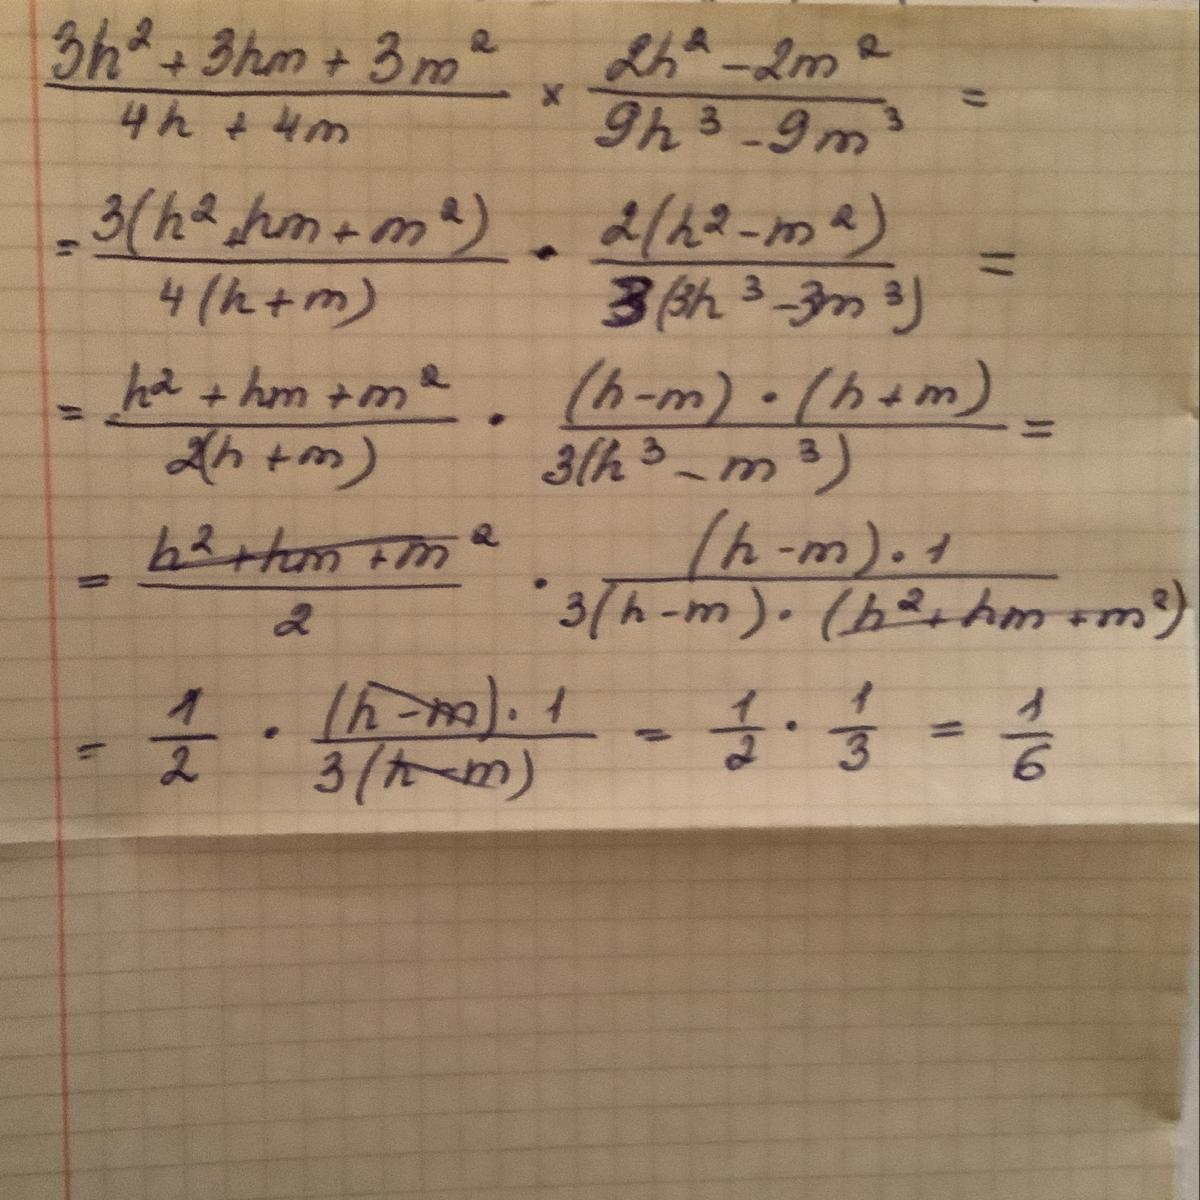 (3h² + 3hm + 3m²)/(4h + 4m) × (2h² - 2m²)/(9h³ - 9m³) =
= 3(h² + hm + m²)/4(h + m) · 2(h² - m²)/3(3h³ - 3m³) =
= (h² + hm + m²)/2(h + m) · (h - m) · (h + m)/3(h³ - m³) =
= (h² + hm + m²)/2 · (h - m) · 1/3(h - m) · (h² + hm + m²)
= 1/2 · (h - m) · 1/3(h - m) = 1/2 · 1/3 = 1/6